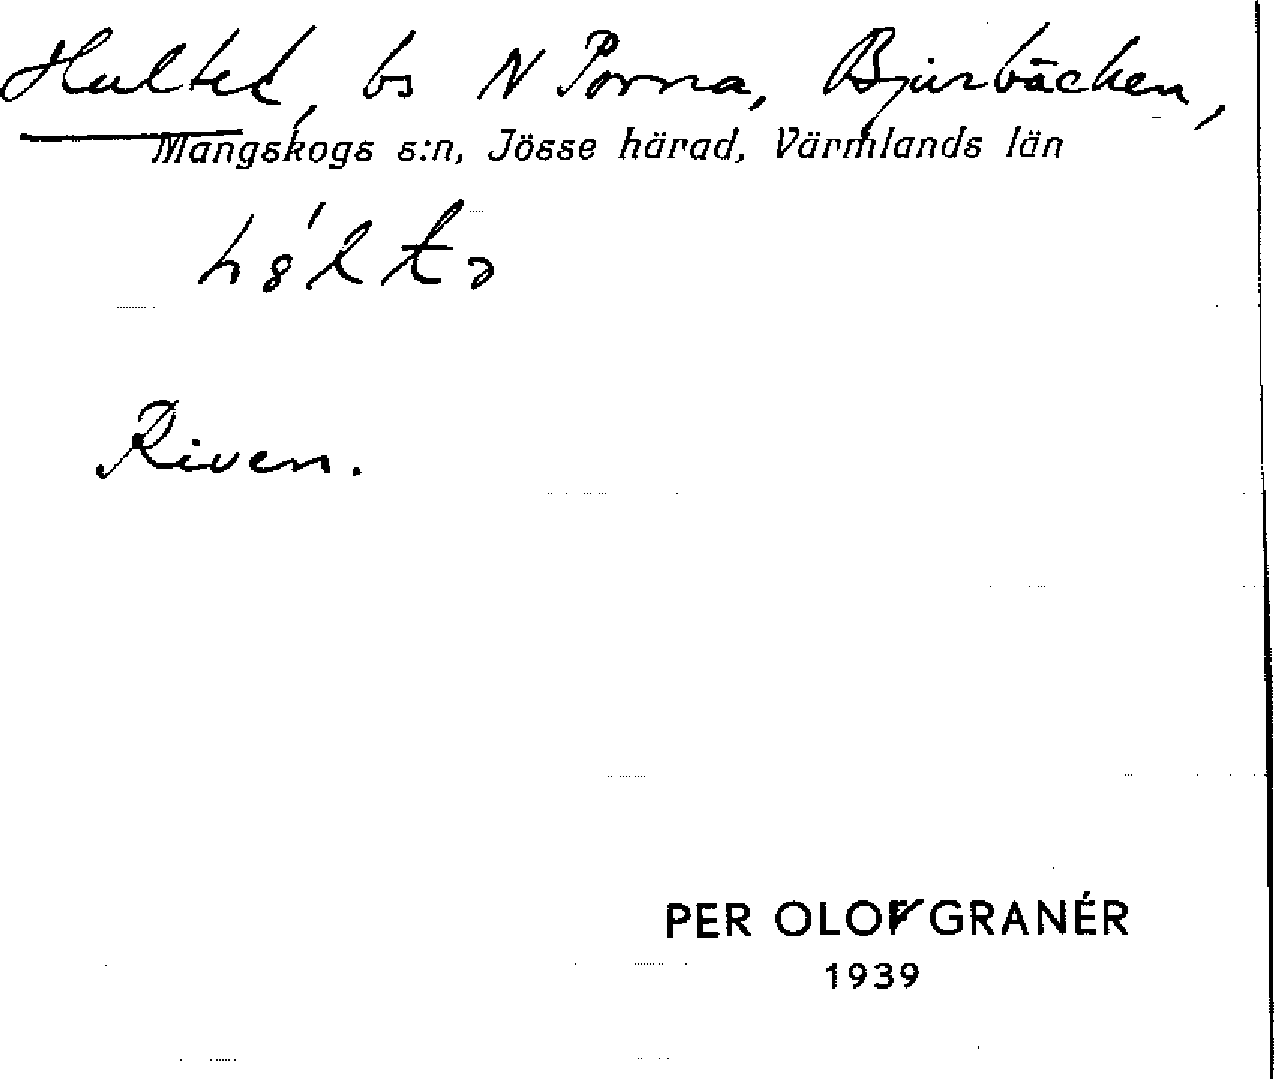 Hultet, bs N Porna, Bjurbäcken,
Mangskogs s:n, Jösse härad, Värmlands län
Riven.
PER OLOF GRANÉR
1939